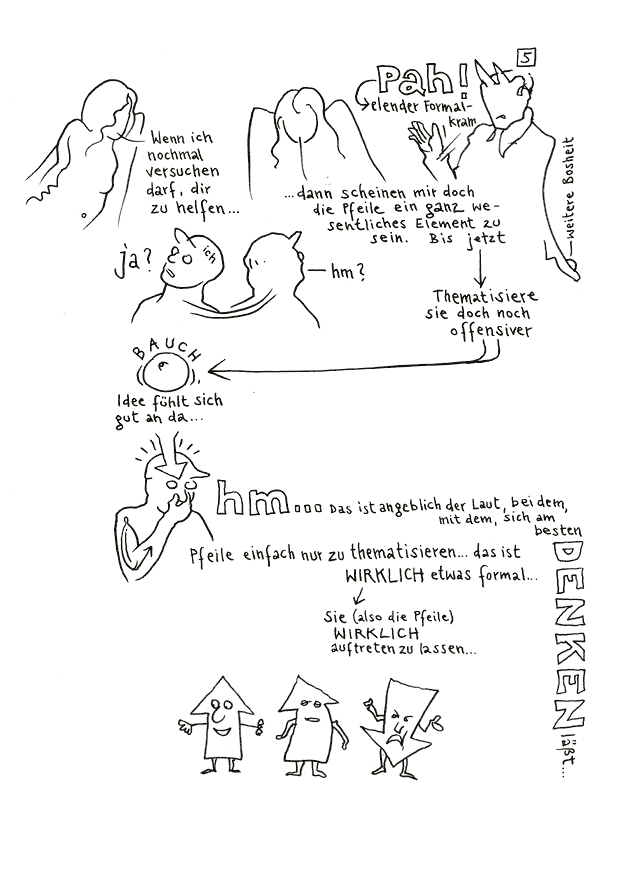 5
Pah!
elender Formal-
kram
weitere Bosheit
Wenn ich
nochmal
versuchen
darf, dir
zu helfen...
...dann scheinen mir doch
die Pfeile ein ganz we-
sentliches Element zu
sein. Bis jetzt
ja?
ich
hm?
Thematisiere
sie doch noch
offensiver
BAUCH
Idee fühlt sich
gut an da...
hm... Das ist angeblich der Laut, bei dem,
mit dem, sich am
besten
DENKEN läßt...
Pfeile einfach nur zu thematisieren... das ist
WIRKLICH etwas formal...
Sie (also die Pfeile)
WIRKLICH
auftreten zu lassen...